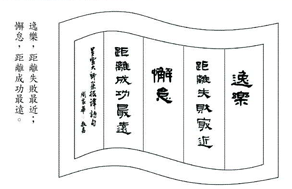 逸樂
距離失敗最近
懈怠
距離成功最遠
星雲大師
逸樂，距離失敗最近；
懈怠，距離成功最遠。